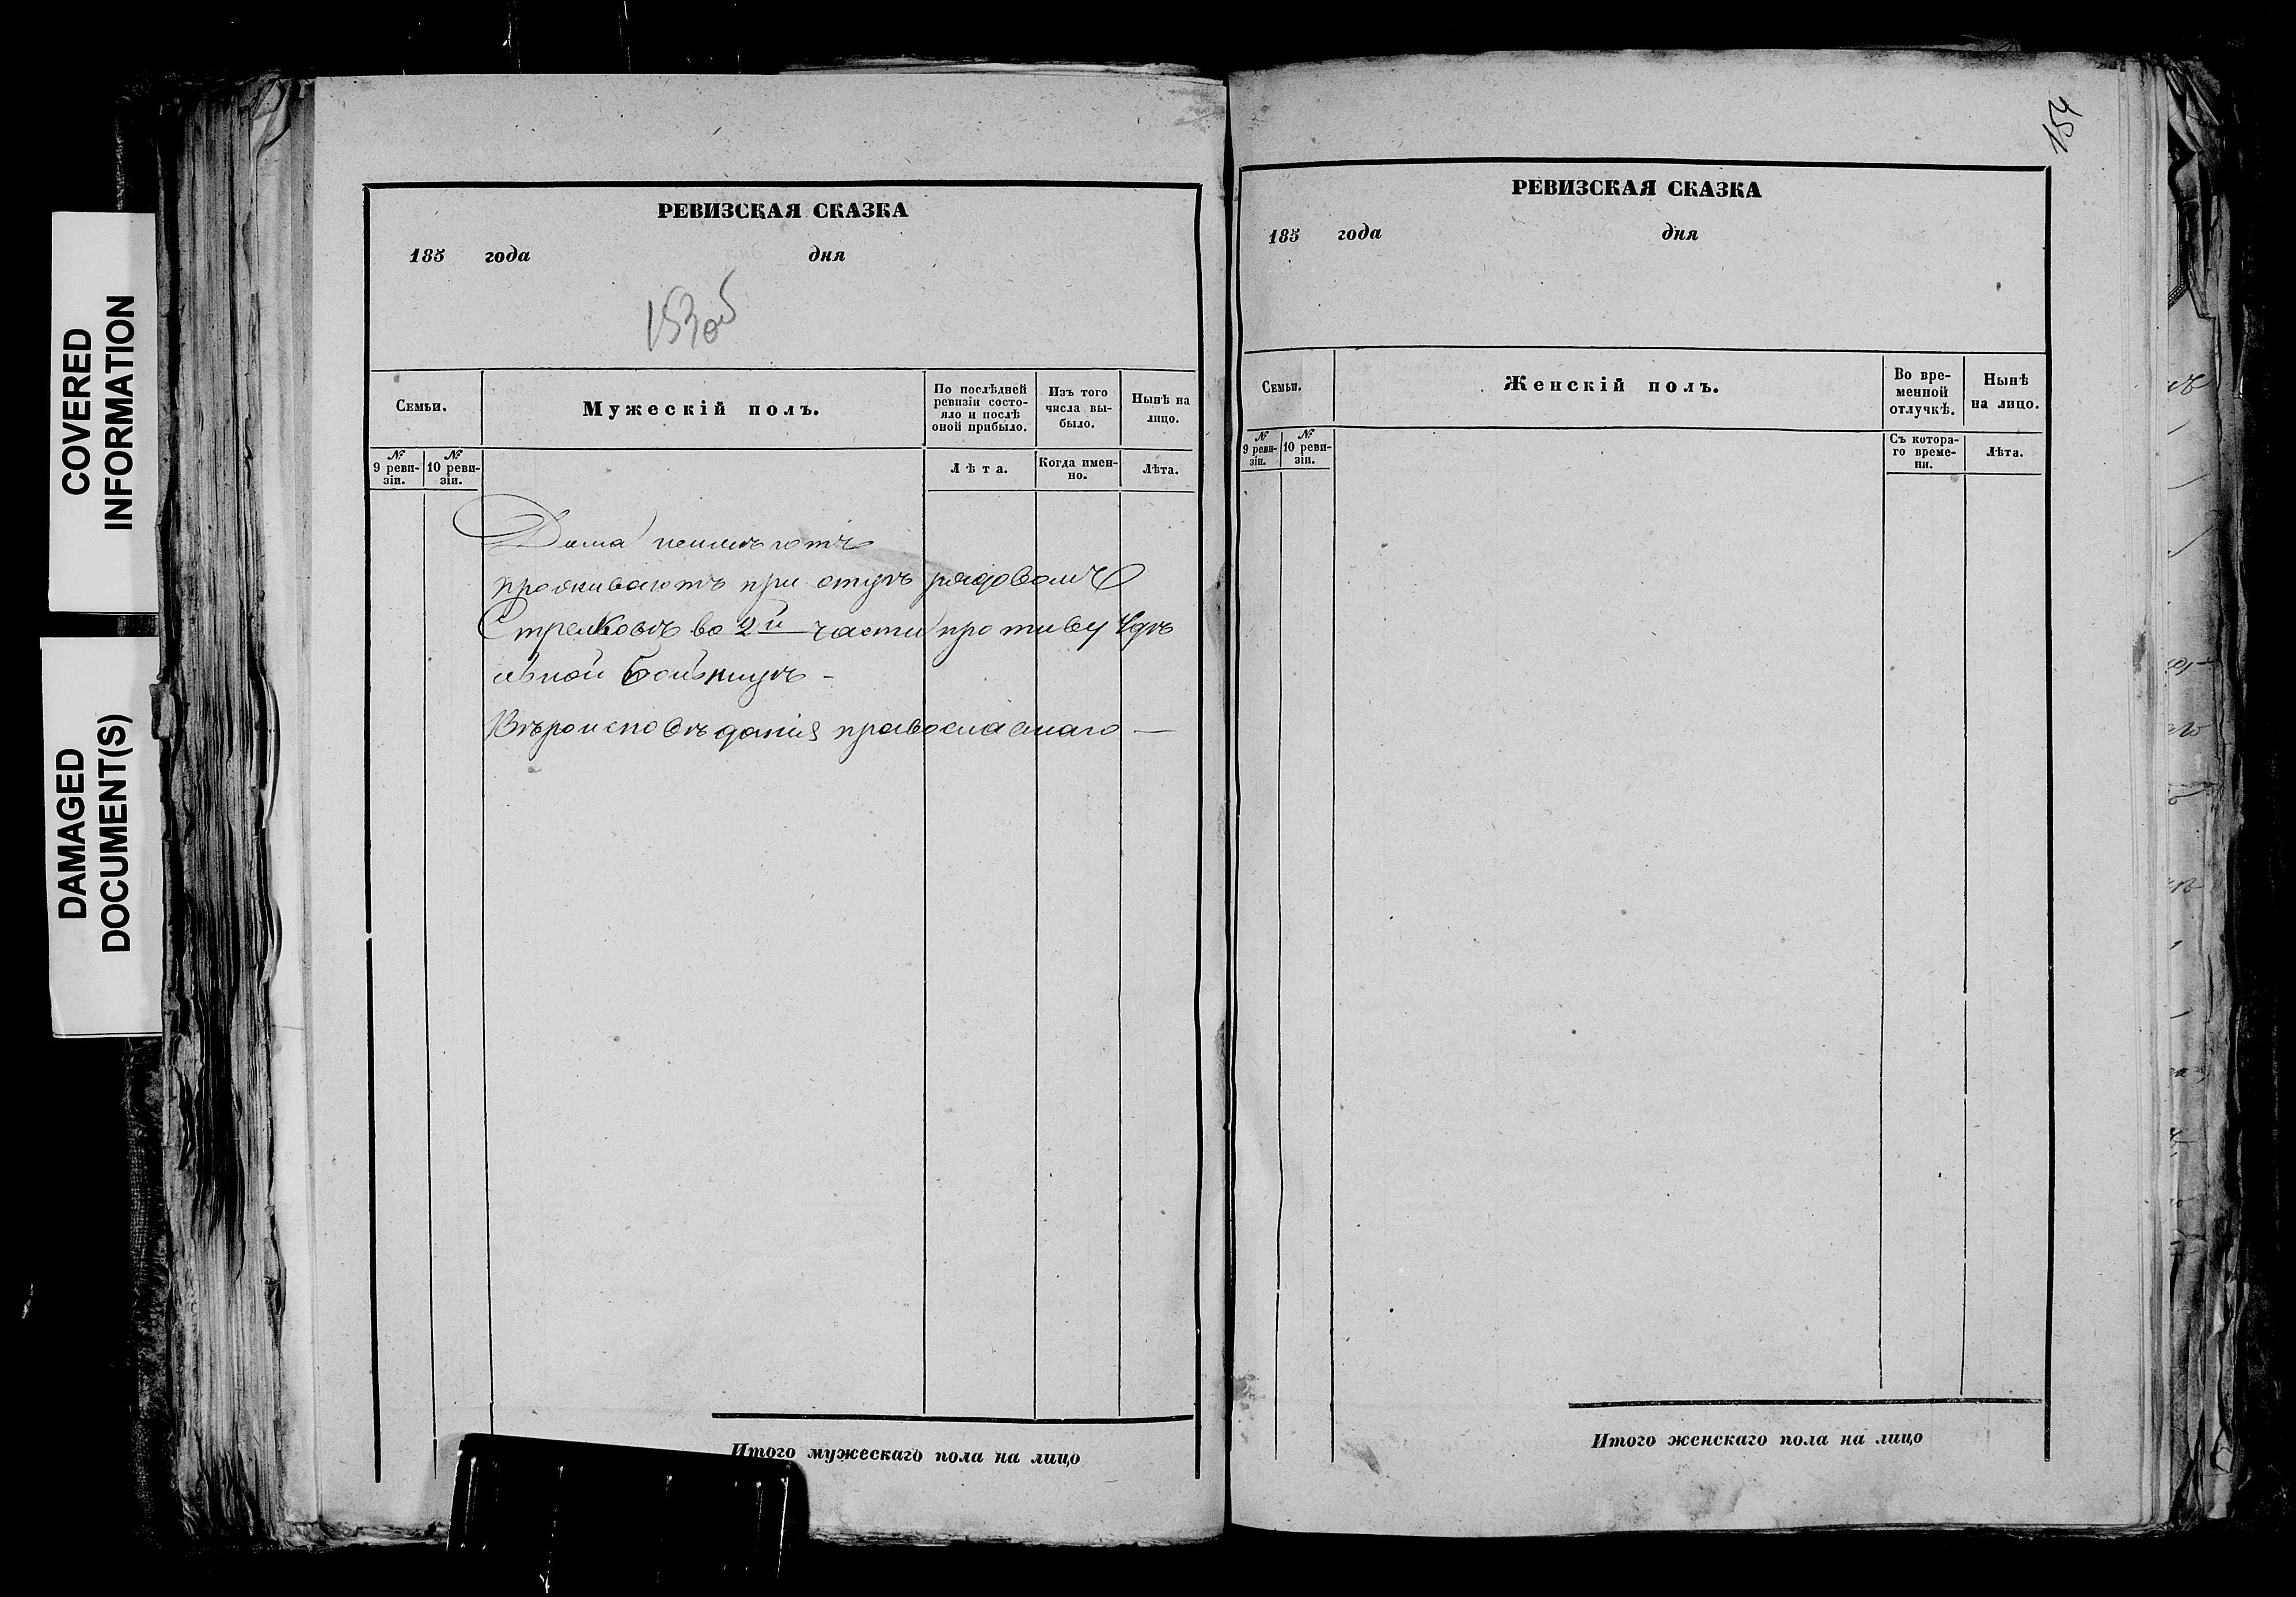 COVERED
INFORMATION
DAMAGED
DOCUMENT(S)
РЕВИЗСКАЯ СКАЗКА
185 года дня
153 об
Семьи.
Мужескій полъ.
По послѣдней
ревизіи состо-
яло и послѣ
оной прибыло.
Изъ того
числа вы-
было.
Нынѣ на
лицо.
№
9 реви-
зіи.
№
10 реви-
зіи.
Лѣта.
Когда имен-
но.
Лѣта.
Дома неимѣютъ
проживаютъ при отцѣ рядовомъ
Стрелковѣ во 2й части противу
ной
Вѣроисповѣданія православнаго —
Итого мужескаго пола на лицо
154
РЕВИЗСКАЯ СКАЗКА
185 года дня
Семьи.
Женскій полъ.
Во вре-
менной
отлучкѣ.
Нынѣ
на лицо.
№
9 реви-
зіи.
№
10 реви-
зіи.
Съ котора-
го време-
ни.
Лѣта.
Итого женскаго пола на лицо